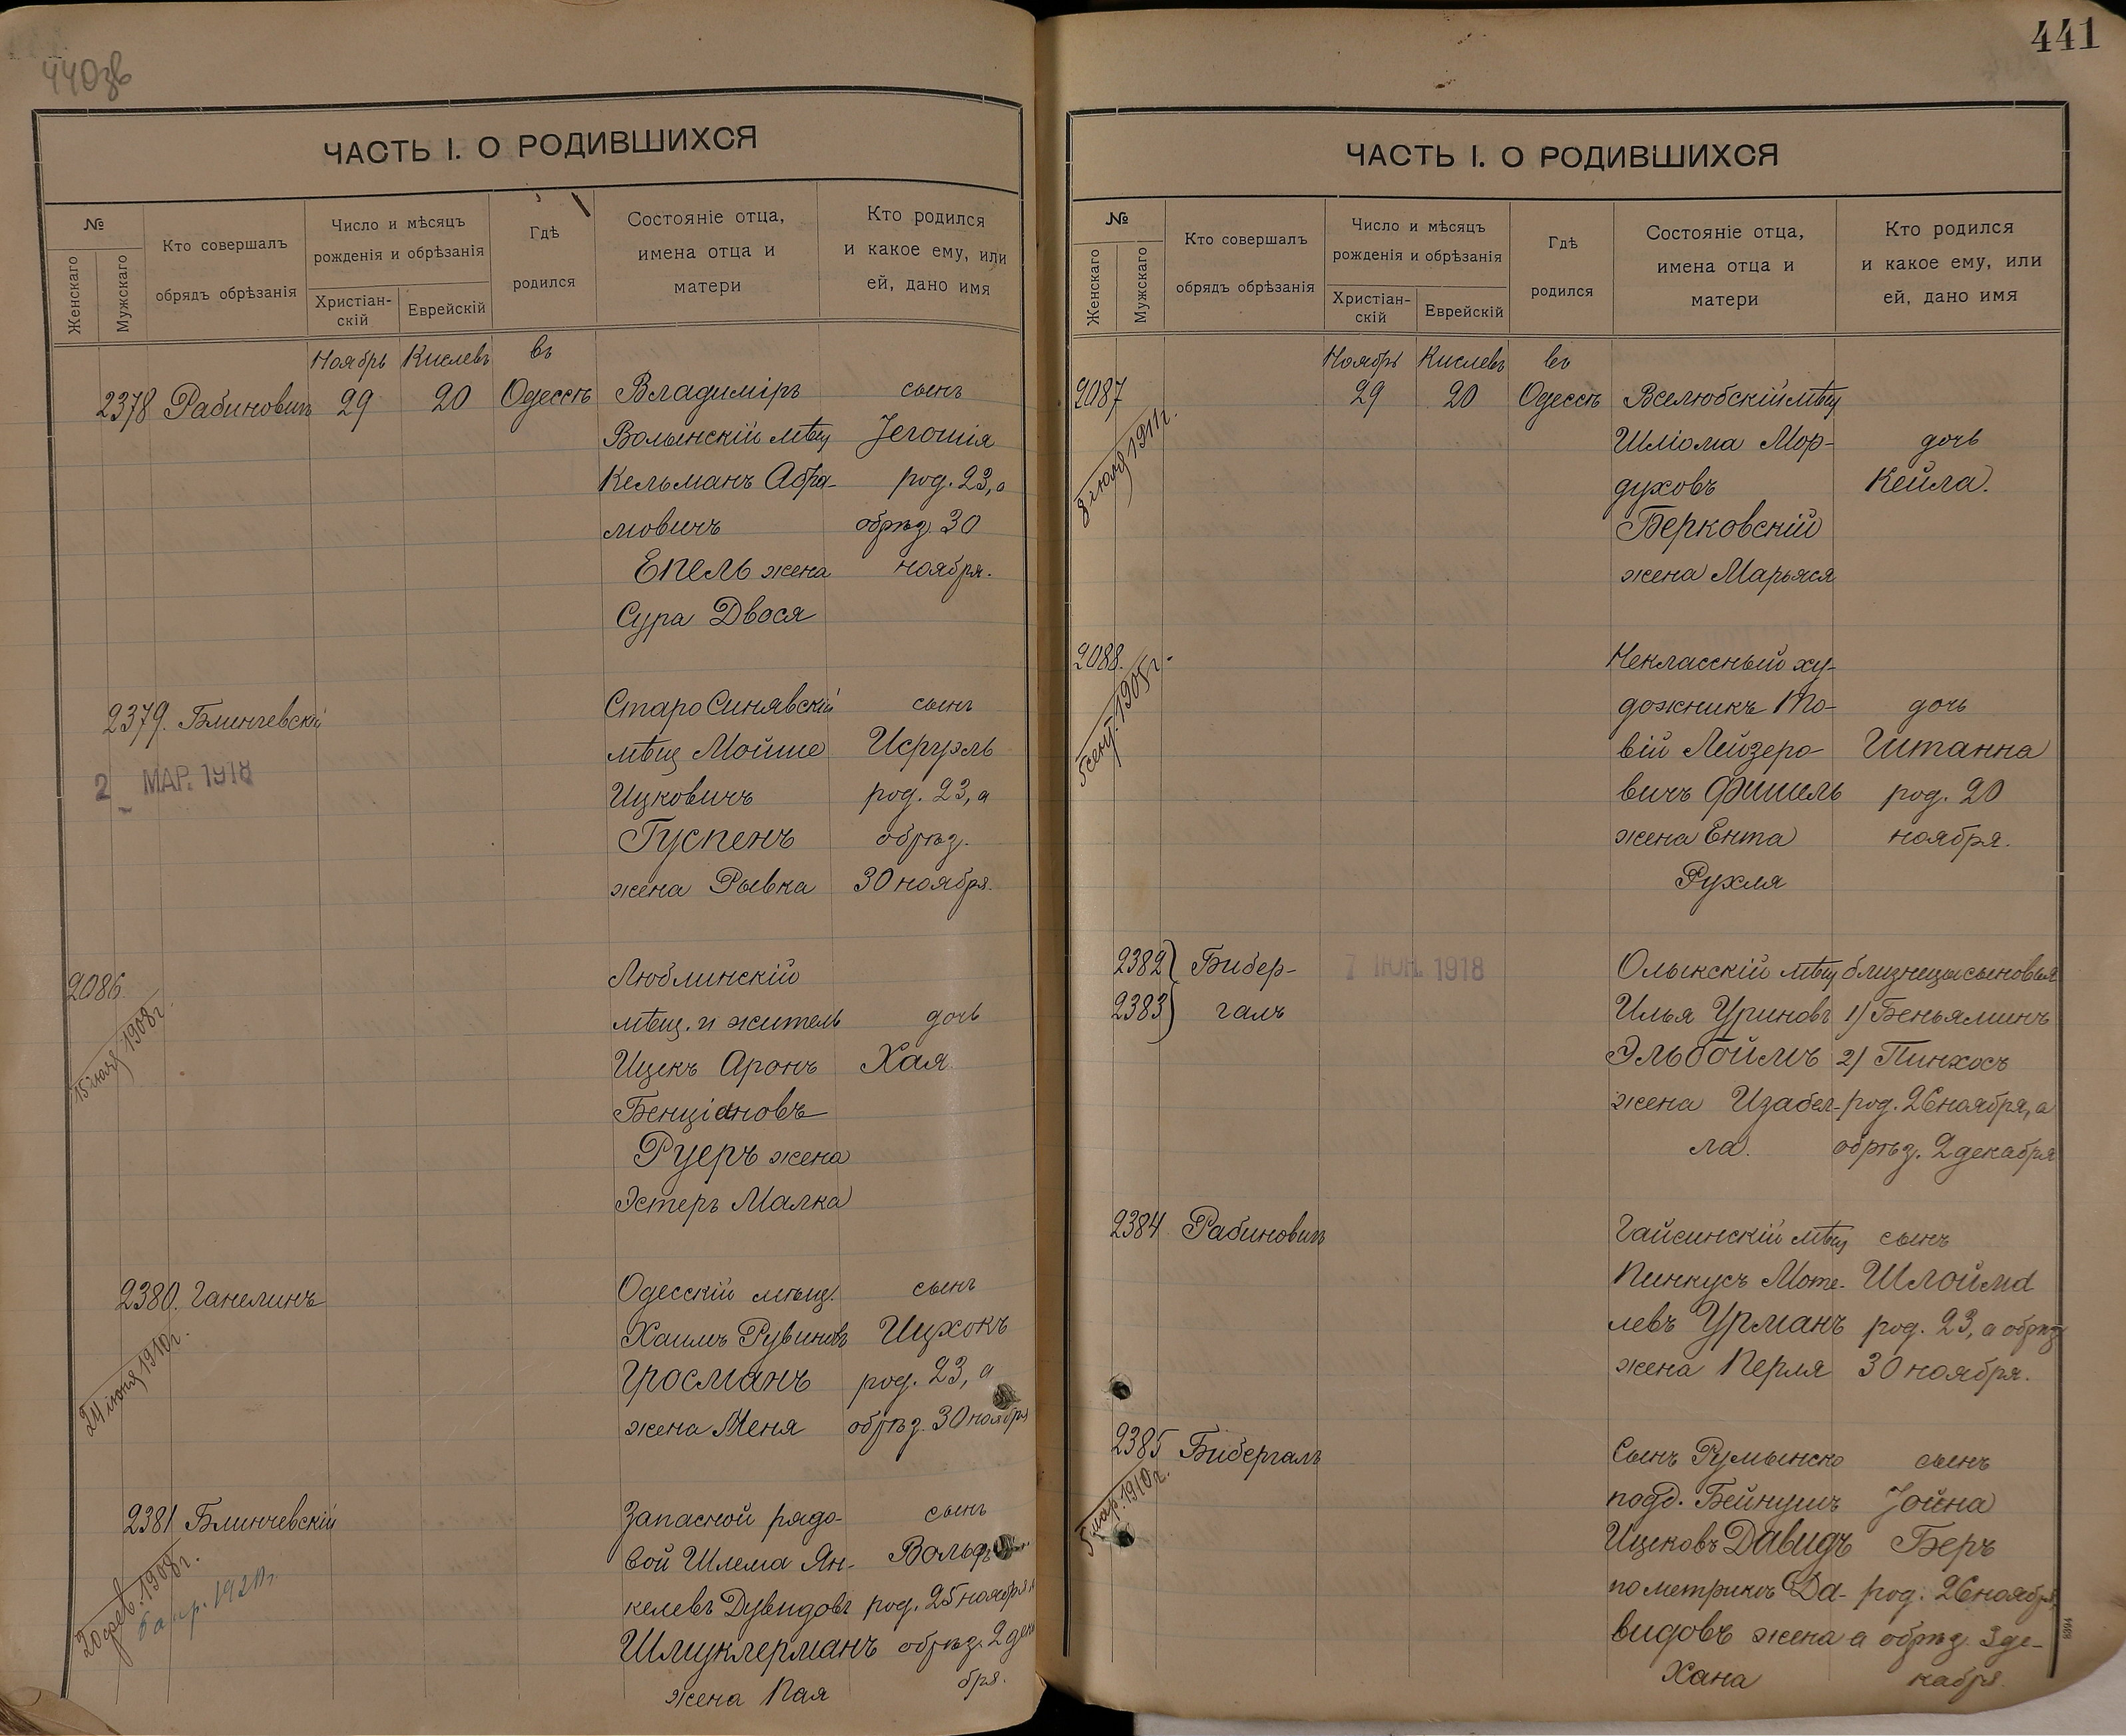 440зв
ЧАСТЬ I. О РОДИВШИХСЯ
№
Женскаго
Мужскаго
Кто совершалъ
обрядъ обрѣзанія
Число и мѣсяцъ
рожденія и обрѣзанія
Христіан-
скій
Еврейскій
Гдѣ
родился
Состояніе отца,
имена отца и
матери
Кто родился
и какое ему, или
ей, дано имя
Ноябрь Кислевъ въ
2378 Рабинович 29 20 Одессѣ Владиміръ сынъ
Волынскій мѣщ Іегошія
Кельманъ Абра- род. 23, а
мовичъ обрѣз. 30
Епель жена ноября.
Сура Двося
2379. Блинчевскій Старо Синявскій сынъ
2 МАР. 1918
мѣщ Мойше Исруэль
Ицковичъ род. 23, а
Гуспенъ обрѣз.
жена Рывка 30 ноября.
2086. Люблинскій
15 іюля 1908 г.
мѣщ. и житель дочь
Ицекъ Аронъ Хая.
Бенціановъ
Руеръ жена
Эстеръ Малка
2380. Ганелинъ Одесскій мѣщ. сынъ
24 іюня 1910 г.
Хаимъ Рувиновъ Ицхокъ
Гросманъ род. 23, а
жена Меня обрѣз. 30 ноября
2381 Блинчевскій Запасной рядо- сынъ
20 фев. 1908 г.
5 апр. 1921 г.
вой Шлема Ян- Вольфъ
келевъ Дувидовъ род. 25 ноября
Шмуклерманъ обрѣз. 2 дека
жена Пая бря.
441
ЧАСТЬ I. О РОДИВШИХСЯ
№
Женскаго
Мужскаго
Кто совершалъ
обрядъ обрѣзанія
Число и мѣсяцъ
рожденія и обрѣзанія
Христіан-
скій
Еврейскій
Гдѣ
родился
Состояніе отца,
имена отца и
матери
Кто родился
и какое ему, или
ей, дано имя
Ноябрь Кислевъ въ
2087 29 20 Одессѣ Вселюбскій мѣщ
1911 г.
Шліома Мор- дочь
духовъ Кейла.
Берковскій
жена Марьяся
2088. Неклассный ху-
5 сент. 1905 г.
дожникъ То- дочь
вій Лейзеро- Шштанна
вичъ Фишель род. 20
жена Ента ноября.
Рухля
2382 Бибер- 7 ІЮН. 1918 Олыкскій мѣщ близнецы сыновья
2383 галъ Илья Уриновъ 1) Беньяминъ
Эльбоймъ 2) Пинхосъ
жена Изабел- род. 26 ноября, а
ла. обрѣз. 2 декабря
2384 Рабинович Гайсинскій мѣщ сынъ
Пинкусъ Моте- Шлойма
левъ Урманъ род. 23, а обрѣз
жена Перля 30 ноября.
2385 Бибергалъ Сынъ Румынско сынъ
5 мар. 1910 г.
подд. Бейнушъ Іойна
Ицековъ Давидъ Беръ
по метрикѣ Да- род. 26 ноября,
видовъ жена а обрѣз. 3 де-
Хана кабря.